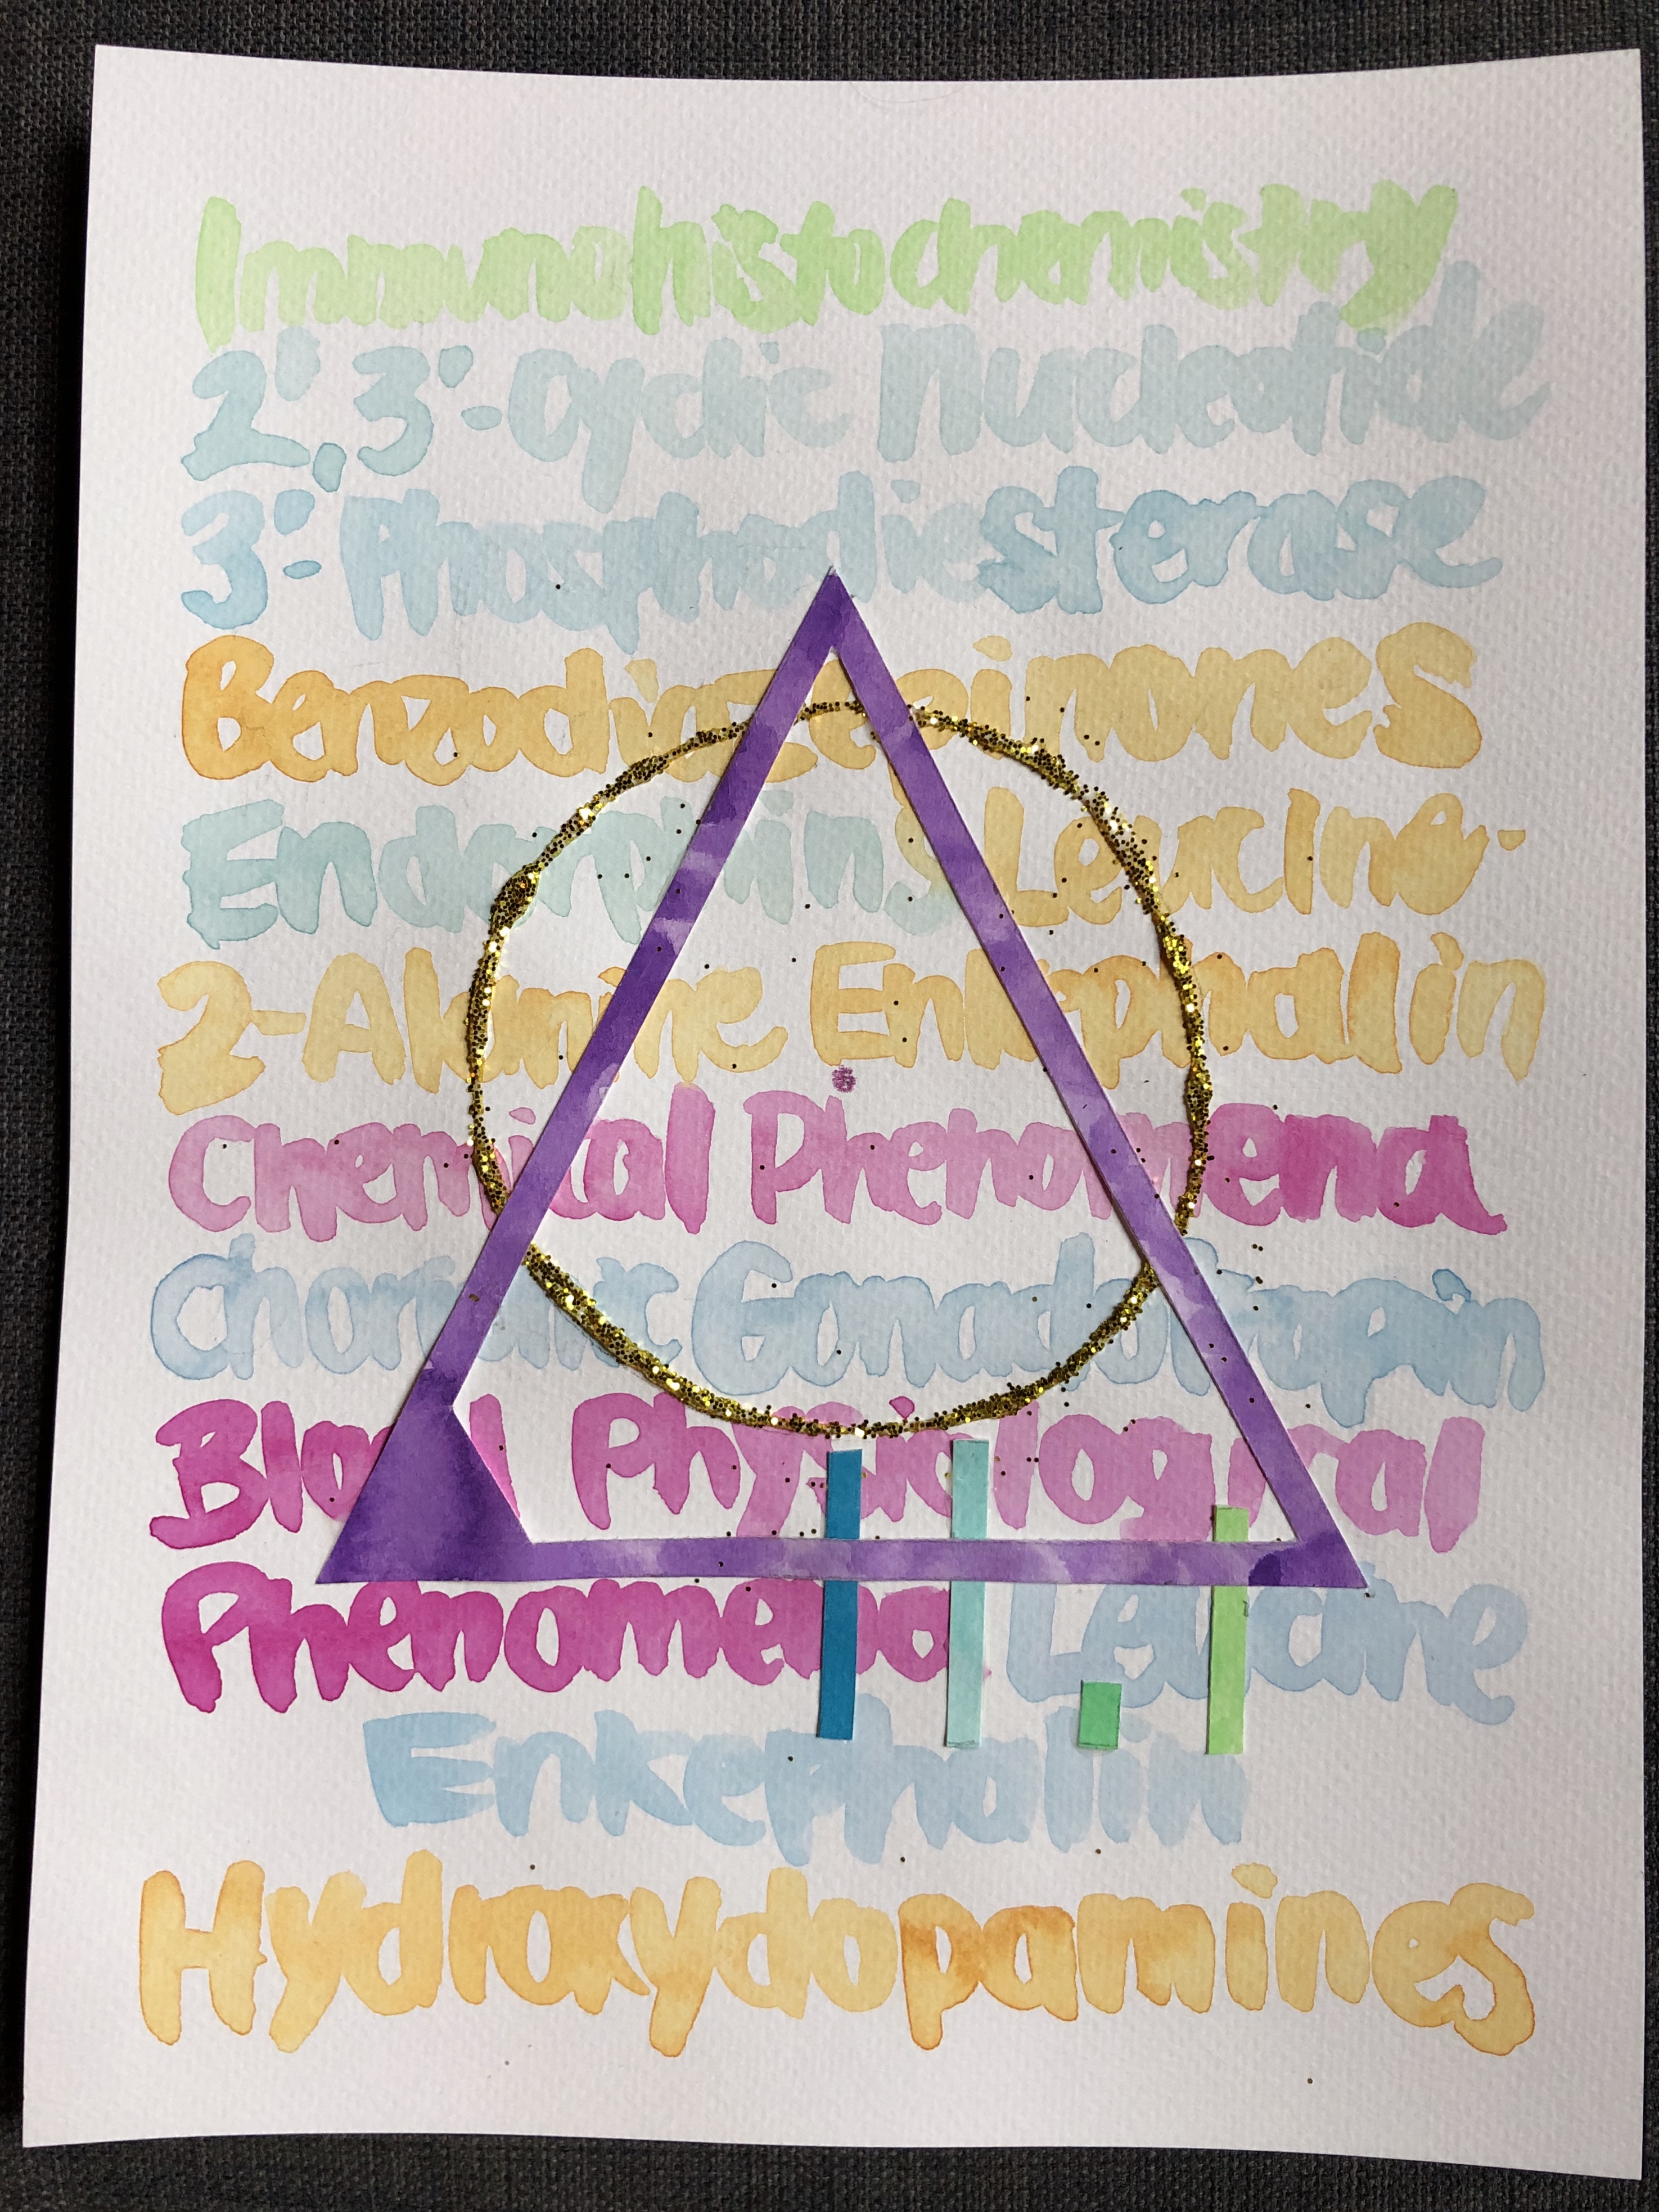 Immunohistochemistry
2',3'-Cyclic Nucleotide
3'-Phosphodiesterase
Benzodiazepinones
Endorphins Leucine-
2-Alanine Enkephalin
Chemical Phenomena
Chorionic Gonadotropin
Blood Physiological
Phenomena Leucine
Enkephalin
Hydroxydopamines